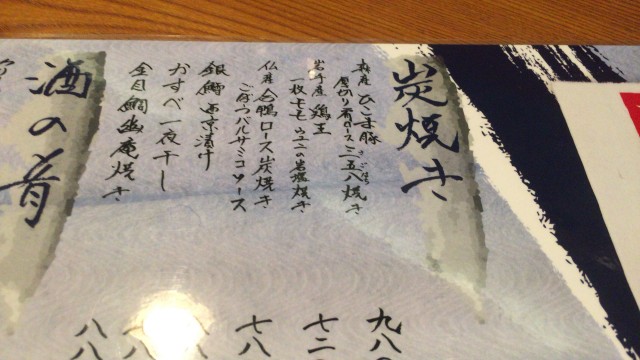 炭焼き
産 ひこま豚
厚切り肩ロース 三五八焼き
岩手産 鶏王
一枚もも ウユニの岩塩焼き
仏産 合鴨ロース炭焼き
ごぼうバルサミコソース
銀鱈 西京漬け
かすべ一夜干し
金目鯛幽庵焼き
九八
七二
七八
八
八八
酒の肴